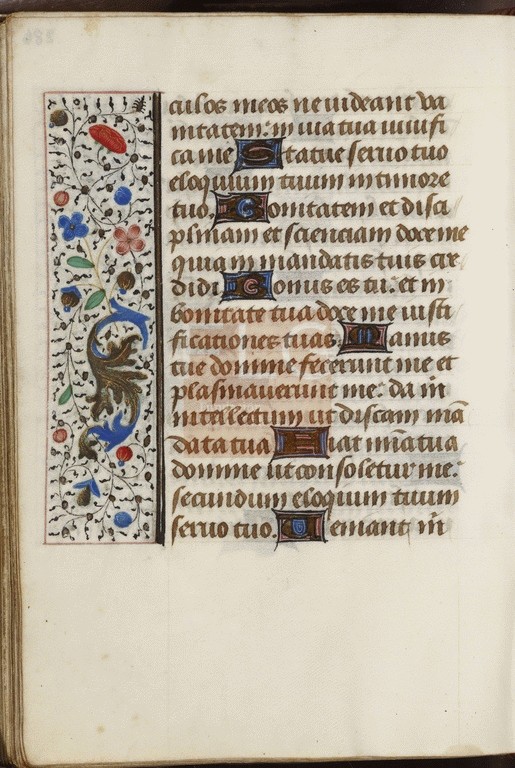 culos meos ne uideant va
nitatem: in uia tua uiuifi
ca me Statue seruo tuo
eloquium tuum in timore
tuo. Bonitatem et disci
plinam et scienciam doce me
quia in mandatis tuis cre
didi Bonus es tu: et in
bonitate tua doce me iusti
ficationes tuas. Manus
tue domine fecerunt me et
plasmauerunt me: da m̄
intellectum ut discam mā
data tua Fiat mīa tua
domine ut consoletur me:
secundum eloquium tuum
seruo tuo. Ueniant m̄